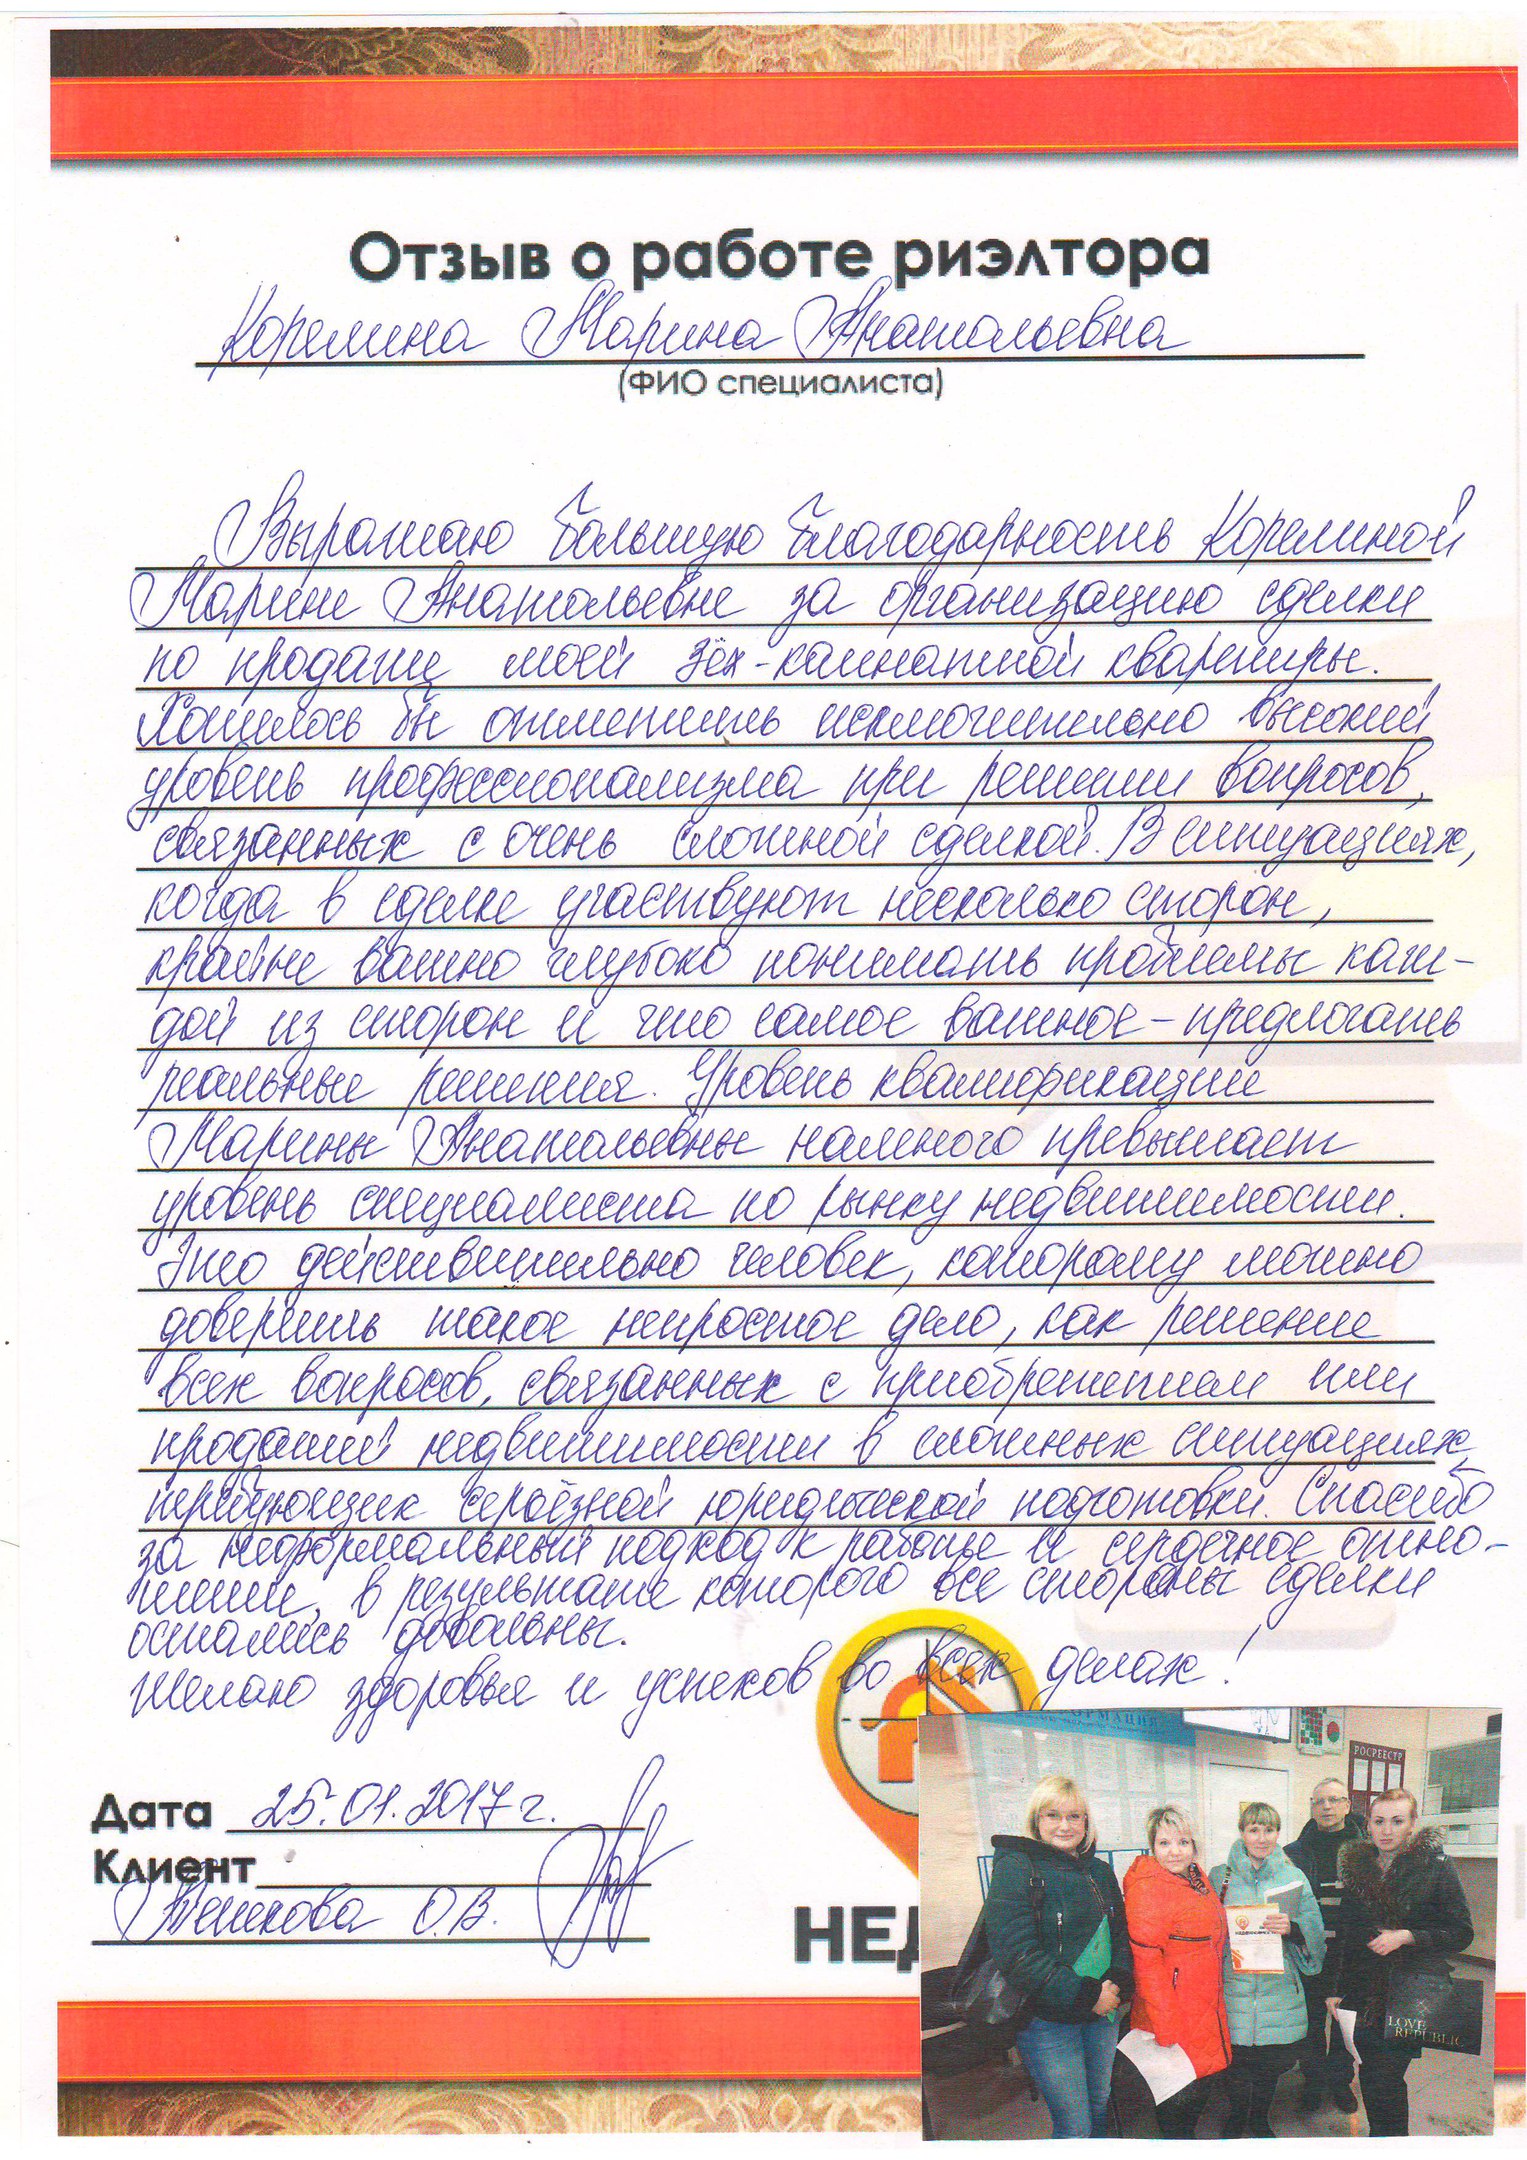 Отзыв о работе риэлтора
Корелина Марина Анатольевна
(ФИО специалиста)
Выражаю большую благодарность Корелиной
Марине Анатольевне за организацию сделки
по продаже моей 3ёх-комнатной квартиры.
Хотелось бы отметить исключительно высокий
уровень профессионализма при решении вопросов,
связанных с очень сложной сделкой. В ситуациях,
когда в сделке участвуют несколько сторон,
крайне важно глубоко понимать проблемы каж-
дой из сторон и что самое важное - предлогать
реальные решения. Уровень квалификации
Марины Анатольевны намного превышает
уровень специалиста по рынку недвижимости.
Это действительно человек, которому можно
доверить такое непростое дело, как решение
всех вопросов, связанных с приобретением или
продажей недвижимости в сложных ситуациях,
требующих серьёзной юридической подготовки. Спасибо
за неформальный подход к работе и сердечное отно-
шение, в результате которого все стороны сделки
остались довольны.
Желаю здоровья и успехов во всех делах!
Дата 25.01.2017 г.
Клиент
О.В.
НЕД
ОРМАЦИЯ
РОСРЕЕСТР
LOVE
REPUBLIC